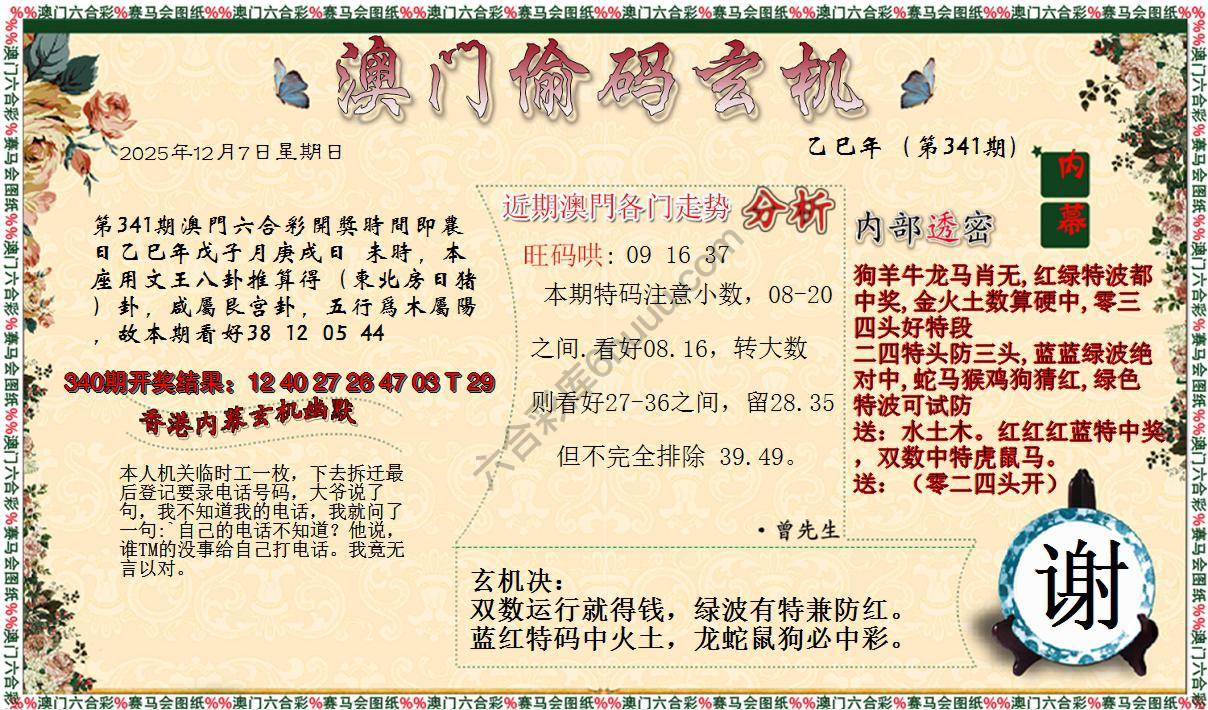 %%澳门六合彩%赛马会图纸%%澳门六合彩%赛马会图纸%%澳门六合彩%赛马会图纸%%澳门六合彩%赛马会图纸%%澳门六合彩%赛马会图纸%%澳门六合彩%赛马会图纸%%
澳门偷码玄机
2025年12月7日星期日
乙巳年（第341期）
内
幕
第341期澳門六合彩開獎時間即農
日乙巳年戊子月庚戌日 未時，本
座用文王八卦推算得（東北房日猪
）卦，咸屬艮宫卦，五行爲木屬陽
，故本期看好38 12 05 44
340期开奖结果：12 40 27 26 47 03 T 29
香港内幕玄机幽默
本人机关临时工一枚，下去拆迁最
后登记要录电话号码，大爷说了
句，我不知道我的电话，我就问了
一句:`自己的电话不知道？他说，
谁TM的没事给自己打电话。我竟无
言以对。
近期澳門各门走势 分析
旺码哄: 09 16 37
本期特码注意小数，08-20
之间.看好08.16，转大数
则看好27-36之间，留28.35
但不完全排除 39.49。
·曾先生
内部透密
狗羊牛龙马肖无,红绿特波都
中奖,金火土数算硬中,零三
四头好特段
二四特头防三头,蓝蓝绿波绝
对中,蛇马猴鸡狗猜红,绿色
特波可试防
送：水土木。红红红蓝特中奖
，双数中特虎鼠马。
送：（零二四头开）
玄机决：
双数运行就得钱，绿波有特兼防红。
蓝红特码中火土，龙蛇鼠狗必中彩。
谢
%%澳门六合彩%赛马会图纸%%澳门六合彩%赛马会图纸%%澳门六合彩%赛马会图纸%%澳门六合彩%赛马会图纸%%澳门六合彩%赛马会图纸%%澳门六合彩%赛马会图纸%%